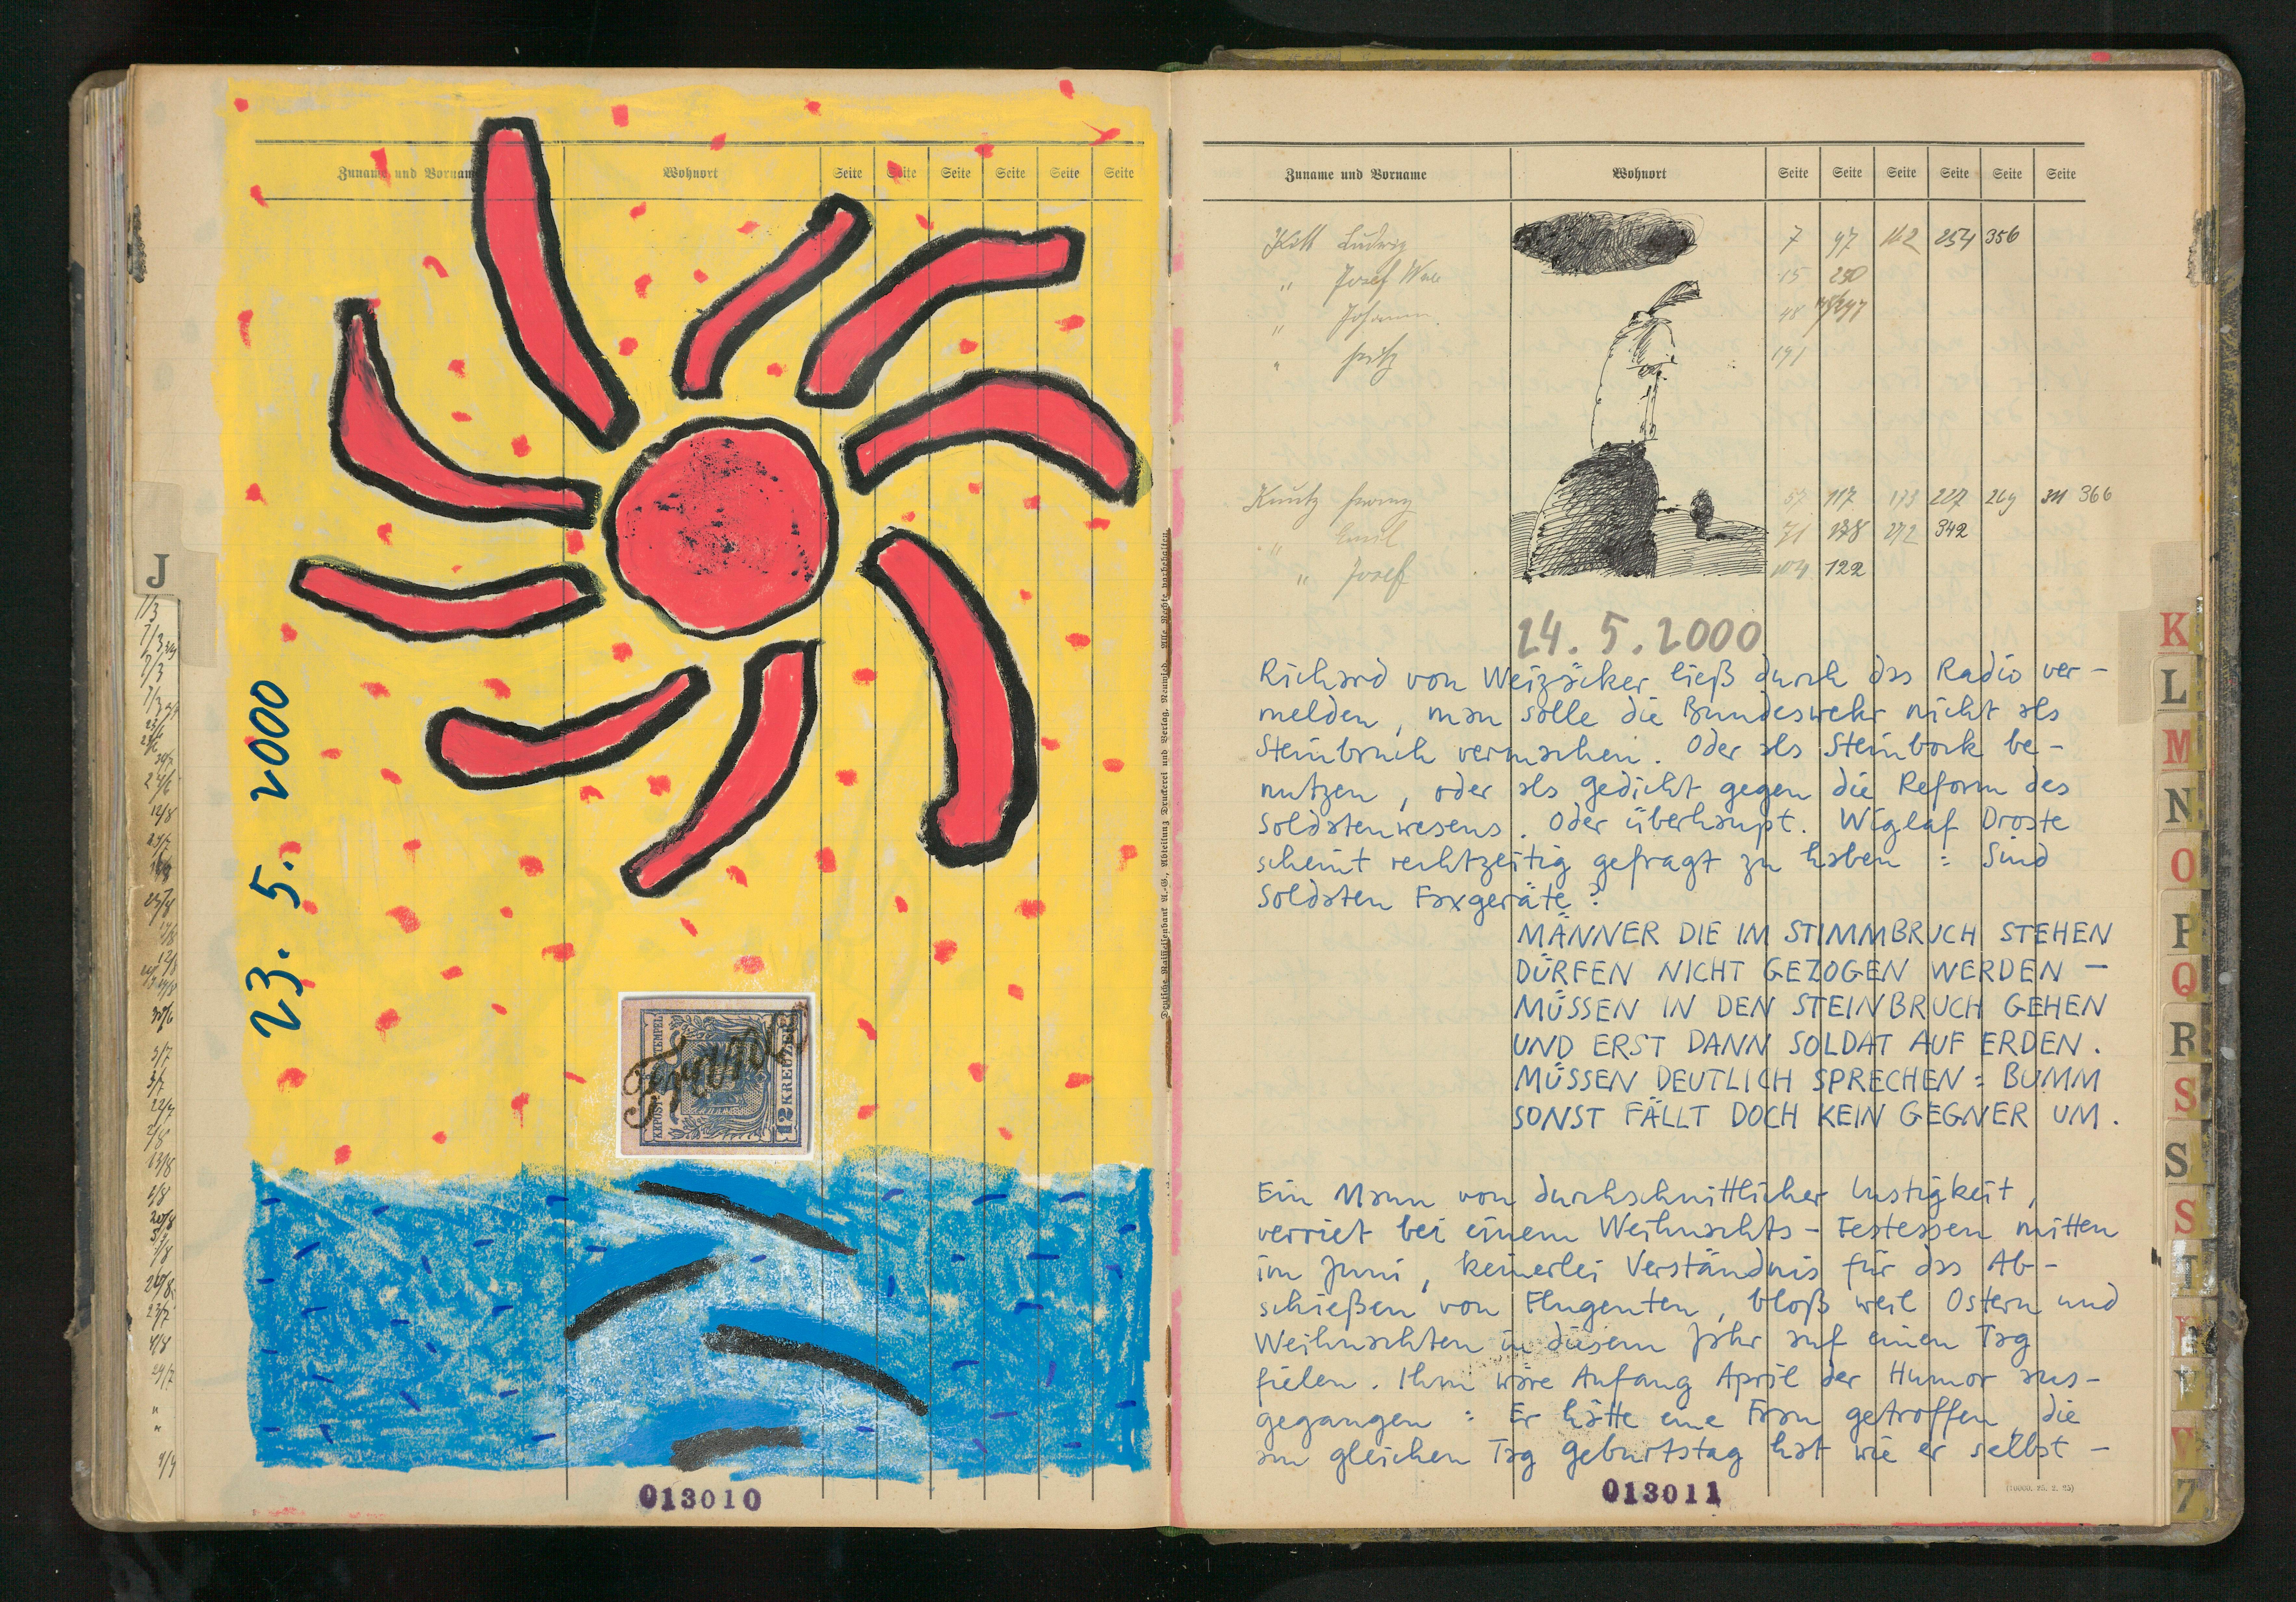 Zuname und Vorname
Wohnort
Seite Seite Seite Seite Seite Seite
J
23. 5. 2000
12 KREUZER
013010
Deutsche Raiffeisenbank A.-G., Abteilung Druckerei und Verlag, Neuwied. Alle Rechte vorbehalten.
Zuname und Vorname
Wohnort
Seite Seite Seite Seite Seite Seite
Ludwig 7 47 162 254 356
" Josef 15 250
" Johann 48
" Fritz 191
57 117 173 227 269 311 366
" Emil 71 178 272 342
" Josef 104 122
24. 5. 2000
Richard von Weizäcker ließ durch das Radio ver-
melden, man solle die Bundeswehr nicht als
Steinbruch vermachen. Oder als Steinbock be-
nutzen, oder als Gedicht gegen die Reform des
Soldatenwesens. Oder überhaupt. Wiglaf Droste
scheint rechtzeitig gefragt zu haben : Sind
Soldaten Faxgeräte?
MÄNNER DIE IM STIMMBRUCH STEHEN
DÜRFEN NICHT GEZOGEN WERDEN –
MÜSSEN IN DEN STEINBRUCH GEHEN
UND ERST DANN SOLDAT AUF ERDEN.
MÜSSEN DEUTLICH SPRECHEN : BUMM
SONST FÄLLT DOCH KEIN GEGNER UM.
Ein Mann von durchschnittlicher Lustigkeit,
verriet bei einem Weihnachts-Festessen mitten
im Juni, keinerlei Verständnis für das Ab-
schießen von Flugenten, bloß weil Ostern und
Weihnachten in diesem Jahr auf einen Tag
fielen. Ihm wäre Anfang April der Humor aus-
gegangen : Er hätte eine Frau getroffen, die
am gleichen Tag Geburtstag hat wie er selbst –
013011
(10000. 25. 2. 25)
K
L
M
N
O
P
Q
R
S
S
S
T
V
Z